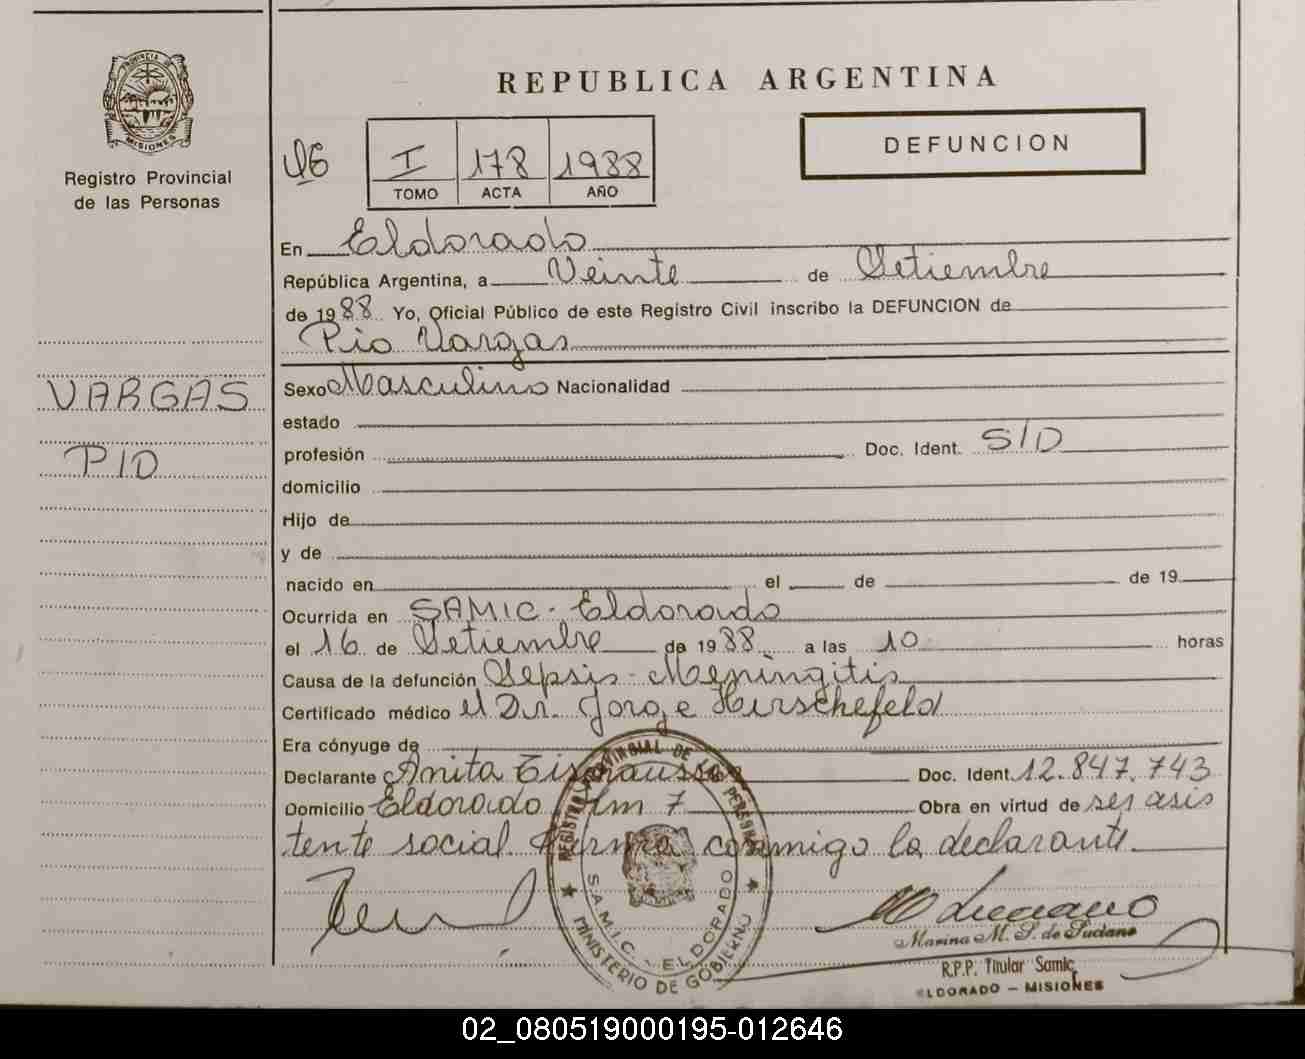 PROVINCIA DE
MISIONES
Registro Provincial
de las Personas
REPUBLICA ARGENTINA
DEFUNCION
I 178 1988
TOMO ACTA AÑO
En Eldorado
República Argentina, a Veinte de Setiembre
de 1988 Yo, Oficial Público de este Registro Civil inscribo la DEFUNCION de
Pio Vargas
VARGAS
PIO
Sexo Masculino Nacionalidad
estado
profesión Doc. Ident. S/D
domicilio
Hijo de
y de
nacido en el de de 19
Ocurrida en SAMIC - Eldorado
el 16 de Setiembre de 1988 a las 10 horas
Causa de la defunción Sepsis - Meningitis
Certificado médico el Dr. Jorge Hirschefeld
Era cónyuge de
Declarante Anita Doc. Ident. 12.847.743
Domicilio Eldorado km 7 Obra en virtud de ser asis
tente social. Firma conmigo la declarante.
REGISTRO PROVINCIAL DE LAS PERSONAS
S.A.M.I.C. - ELDORADO
MINISTERIO DE GOBIERNO
M Luciano
Marina M. S. de Luciano
R.P.P. Titular Samic
ELDORADO - MISIONES
02_080519000195-012646